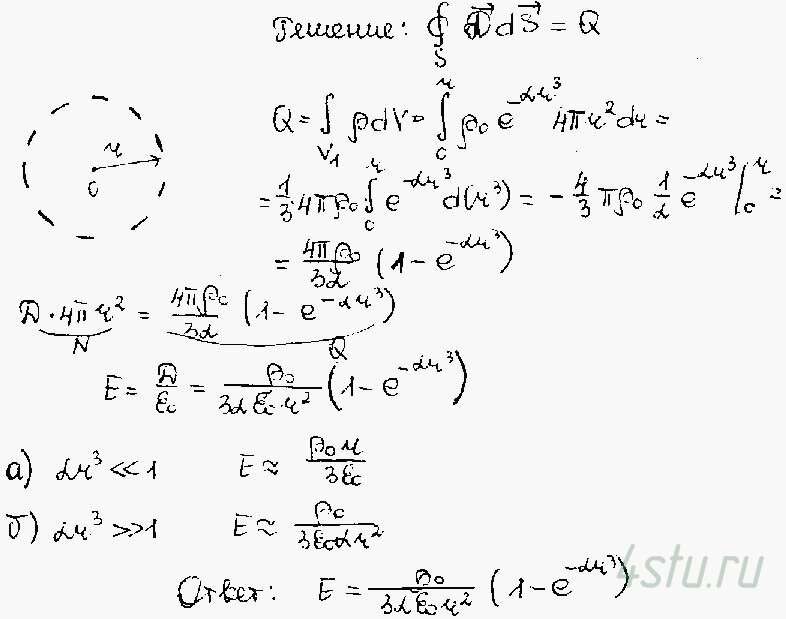 Решение: ∮_S D⃗ dS⃗ = Q
Q = ∫_{V₁} ρdV = ∫_0^r ρ₀ e^{-αr³} 4πr² dr =
= 1/3 4πρ₀ ∫_0^r e^{-αr³} d(r³) = - 4/3 πρ₀ 1/α e^{-αr³} |_0^r =
= 4πρ₀/3α (1 - e^{-αr³})
r
0
D · 4πr² = 4πρ₀/3α (1 - e^{-αr³})
N
Q
E = D/ε₀ = ρ₀/3αε₀·r² (1 - e^{-αr³})
а) αr³ ≪ 1 E ≈ ρ₀r/3ε₀
б) αr³ ≫ 1 E ≈ ρ₀/3ε₀αr²
Ответ: E = ρ₀/3αε₀r² (1 - e^{-αr³})
4stu.ru